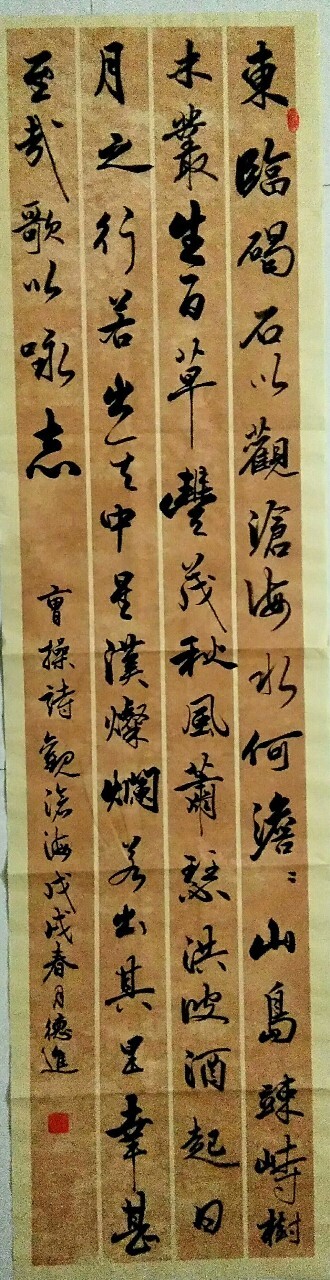 東臨碣石以觀滄海水何澹〻山島竦峙樹
木叢生百草豐茂秋風蕭瑟洪波涌起日
月之行若出其中星漢燦爛若出其里幸甚
至哉歌以咏志
曹操詩觀滄海戊戌春月德進